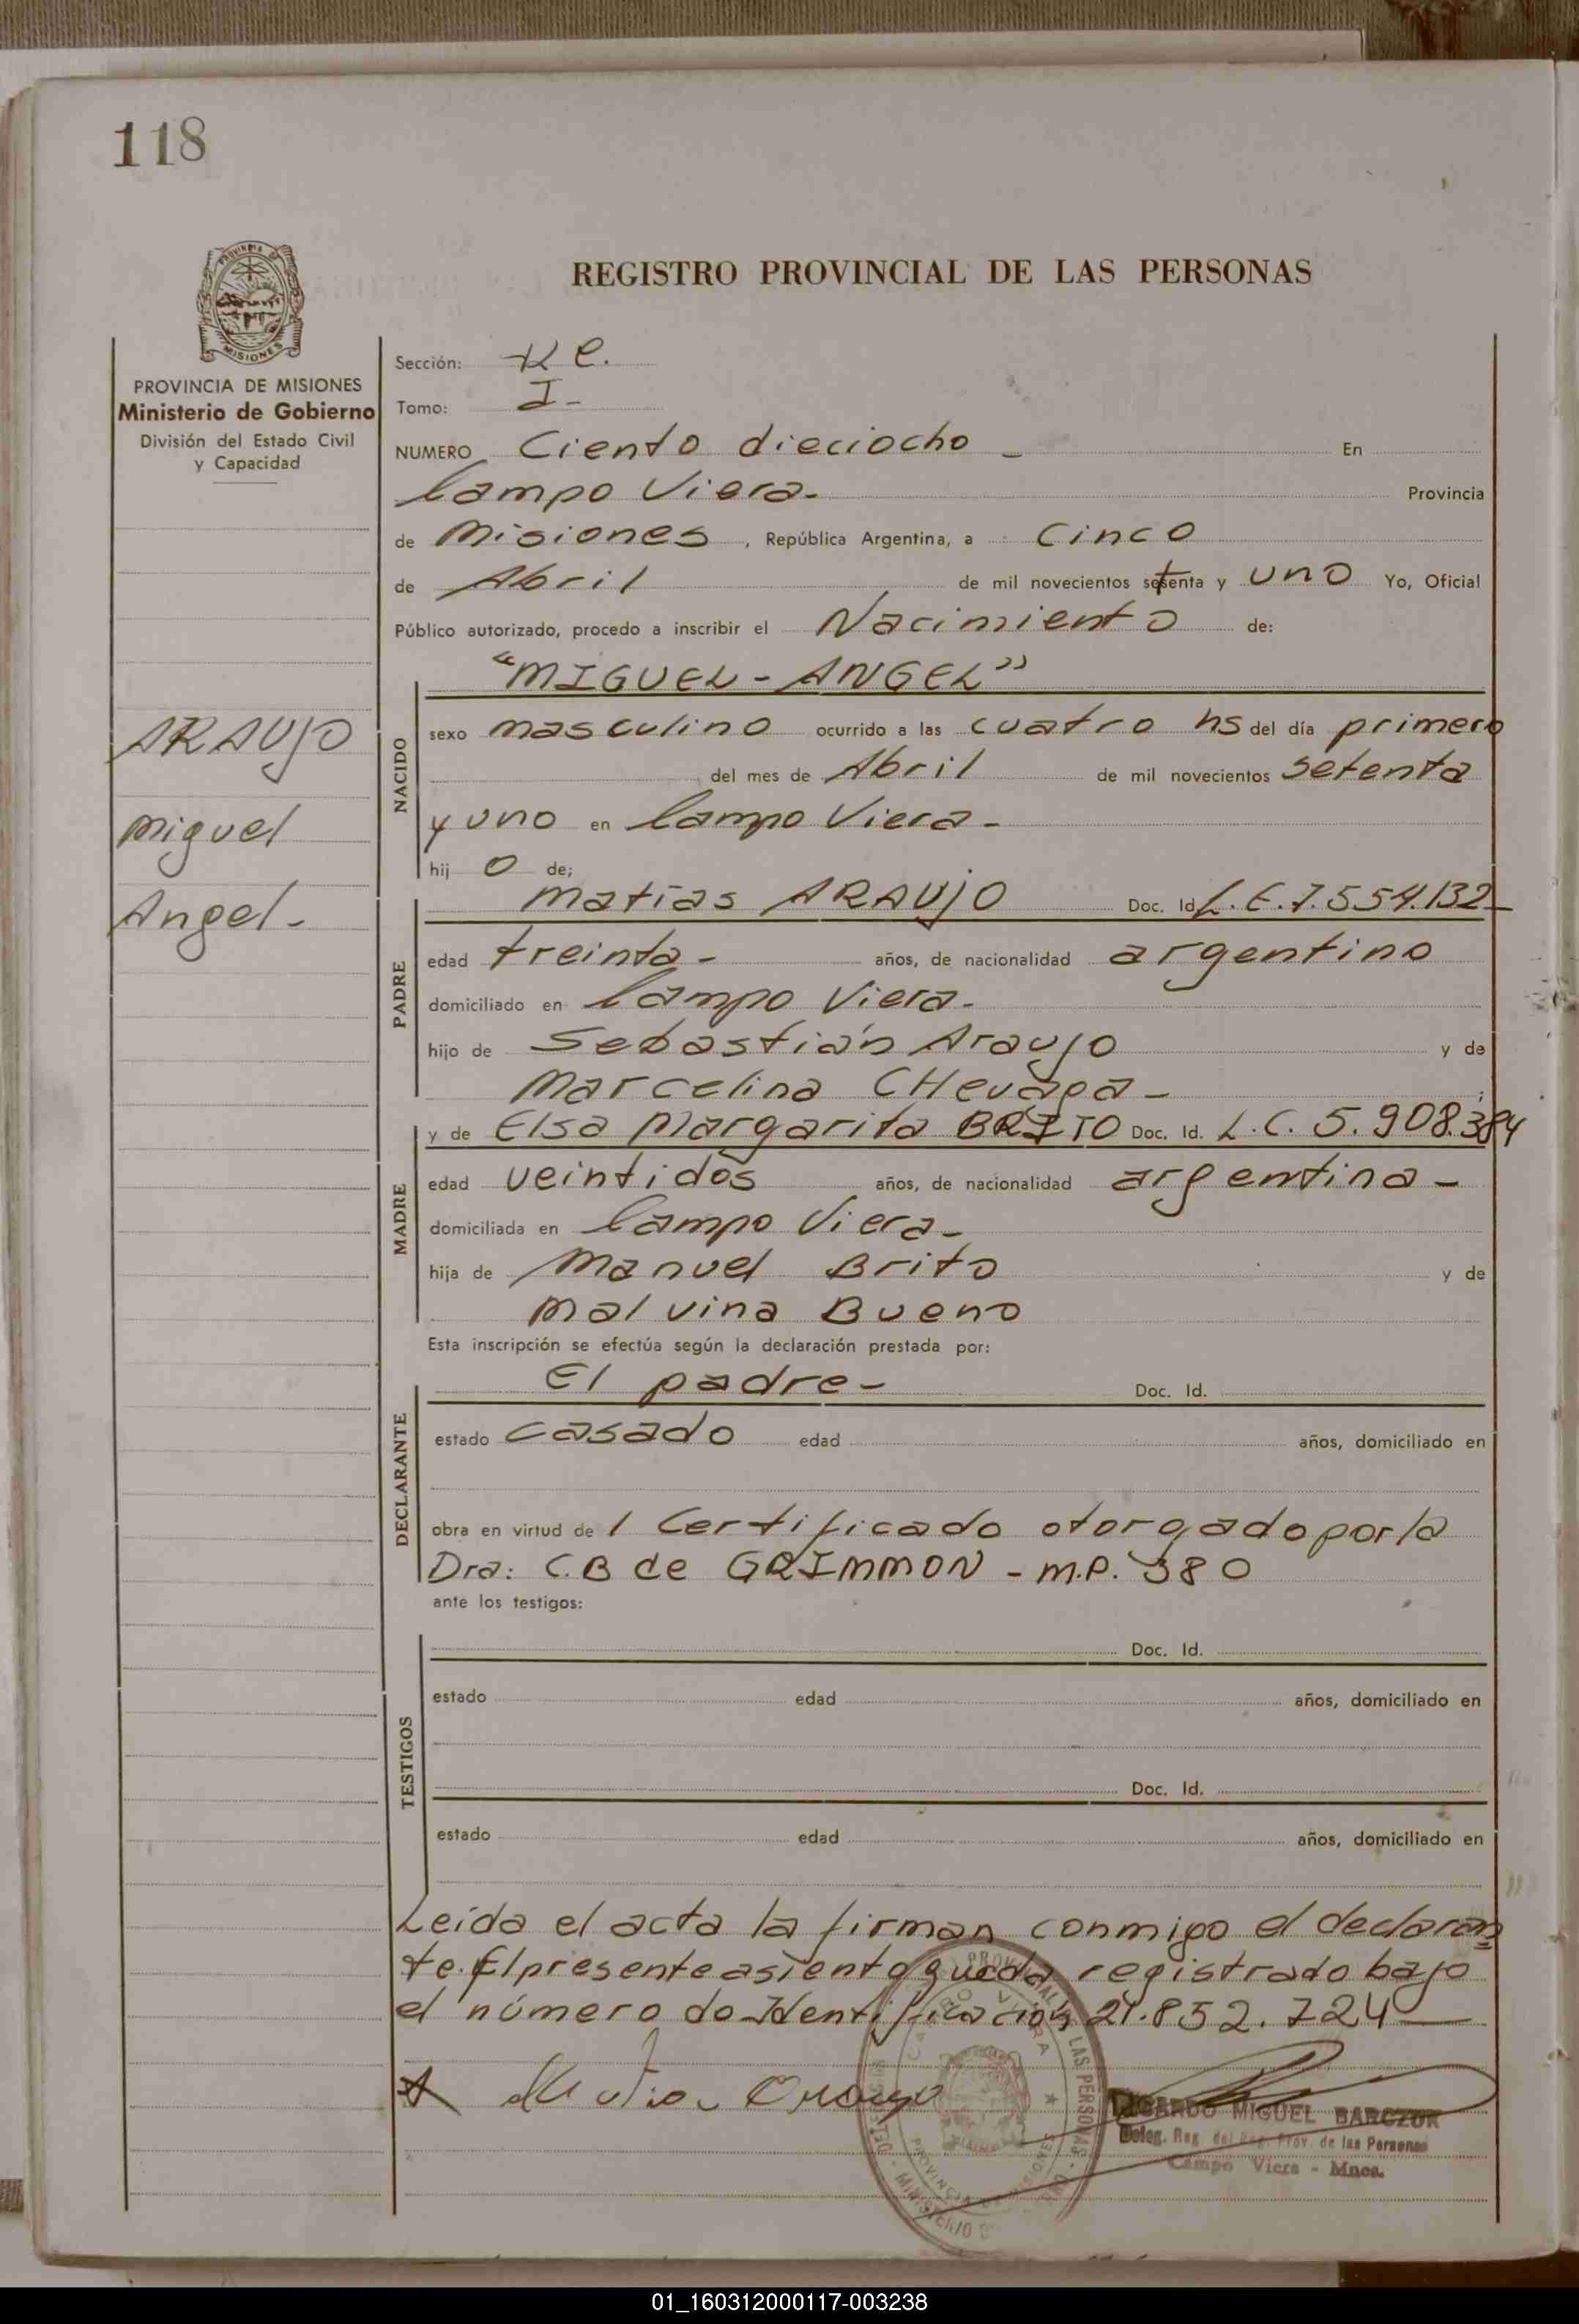 118
PROVINCIA DE MISIONES
Ministerio de Gobierno
División del Estado Civil
y Capacidad
ARAUJO
Miguel
Angel-
REGISTRO PROVINCIAL DE LAS PERSONAS
Sección:
Tomo: I-
NUMERO Ciento dieciocho - En
Campo Viera- Provincia
de Misiones, República Argentina, a Cinco
de Abril de mil novecientos setenta y uno Yo, Oficial
Público autorizado, procedo a inscribir el Nacimiento de:
"MIGUEL-ANGEL"
NACIDO
sexo masculino ocurrido a las cuatro hs del día primero
del mes de Abril de mil novecientos setenta
y uno en Campo Viera-
hij o de;
PADRE
Matías ARAUJO Doc. Id. L.E.7.554.132-
edad treinta- años, de nacionalidad argentino
domiciliado en Campo Viera-
hijo de Sebastián Araujo y de
Marcelina -;
MADRE
y de Elsa Margarita BRITO Doc. Id. L.C. 5.908.384
edad veintidos años, de nacionalidad argentina-
domiciliada en Campo Viera-
hija de Manuel Brito y de
Malvina Bueno
Esta inscripción se efectúa según la declaración prestada por:
DECLARANTE
El padre- Doc. Id.
estado casado edad años, domiciliado en
obra en virtud de 1 Certificado otorgado por la
Dra: C.B de GRIMMON - M.P. 380
ante los testigos:
TESTIGOS
Doc. Id.
estado edad años, domiciliado en
Doc. Id.
estado edad años, domiciliado en
Leída el acta la firman conmigo el declaran
te. El presente asiento queda registrado bajo
el número de Identificación 21.852.724
RICARDO MIGUEL BARCZUK
Deleg. Reg. del Reg. Prov. de las Personas
Campo Viera - Mnes.
01_160312000117-003238